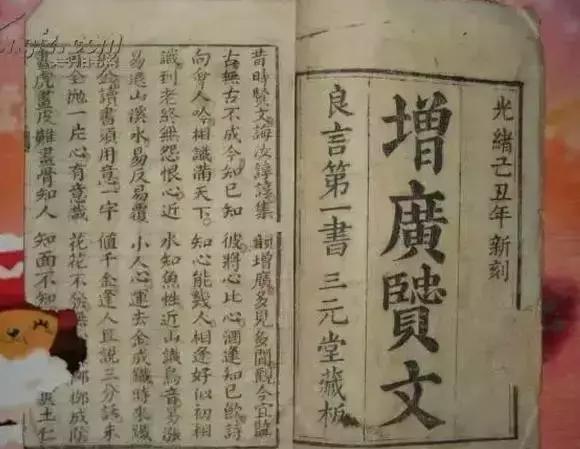 光緒己丑年新刻
增廣賢文
良言第一書 三元堂藏板
昔時賢文誨汝諄諄集韻增廣多見多聞觀今宜鑒
古無古不成今知已知彼將心比心酒逢知已飲詩
向會人吟相識滿天下知心能幾人相逢好似初相
識到老終無怨恨心近水知魚性近山識鳥音易漲
易退山溪水易反易覆小人心運去金成鐵時來鐵
似金讀書須用意一字值千金逢人且說三分話未
可全拋一片心有意栽花花不發無柳成陰
畫虎畫皮難畫骨知人知面不知土仁